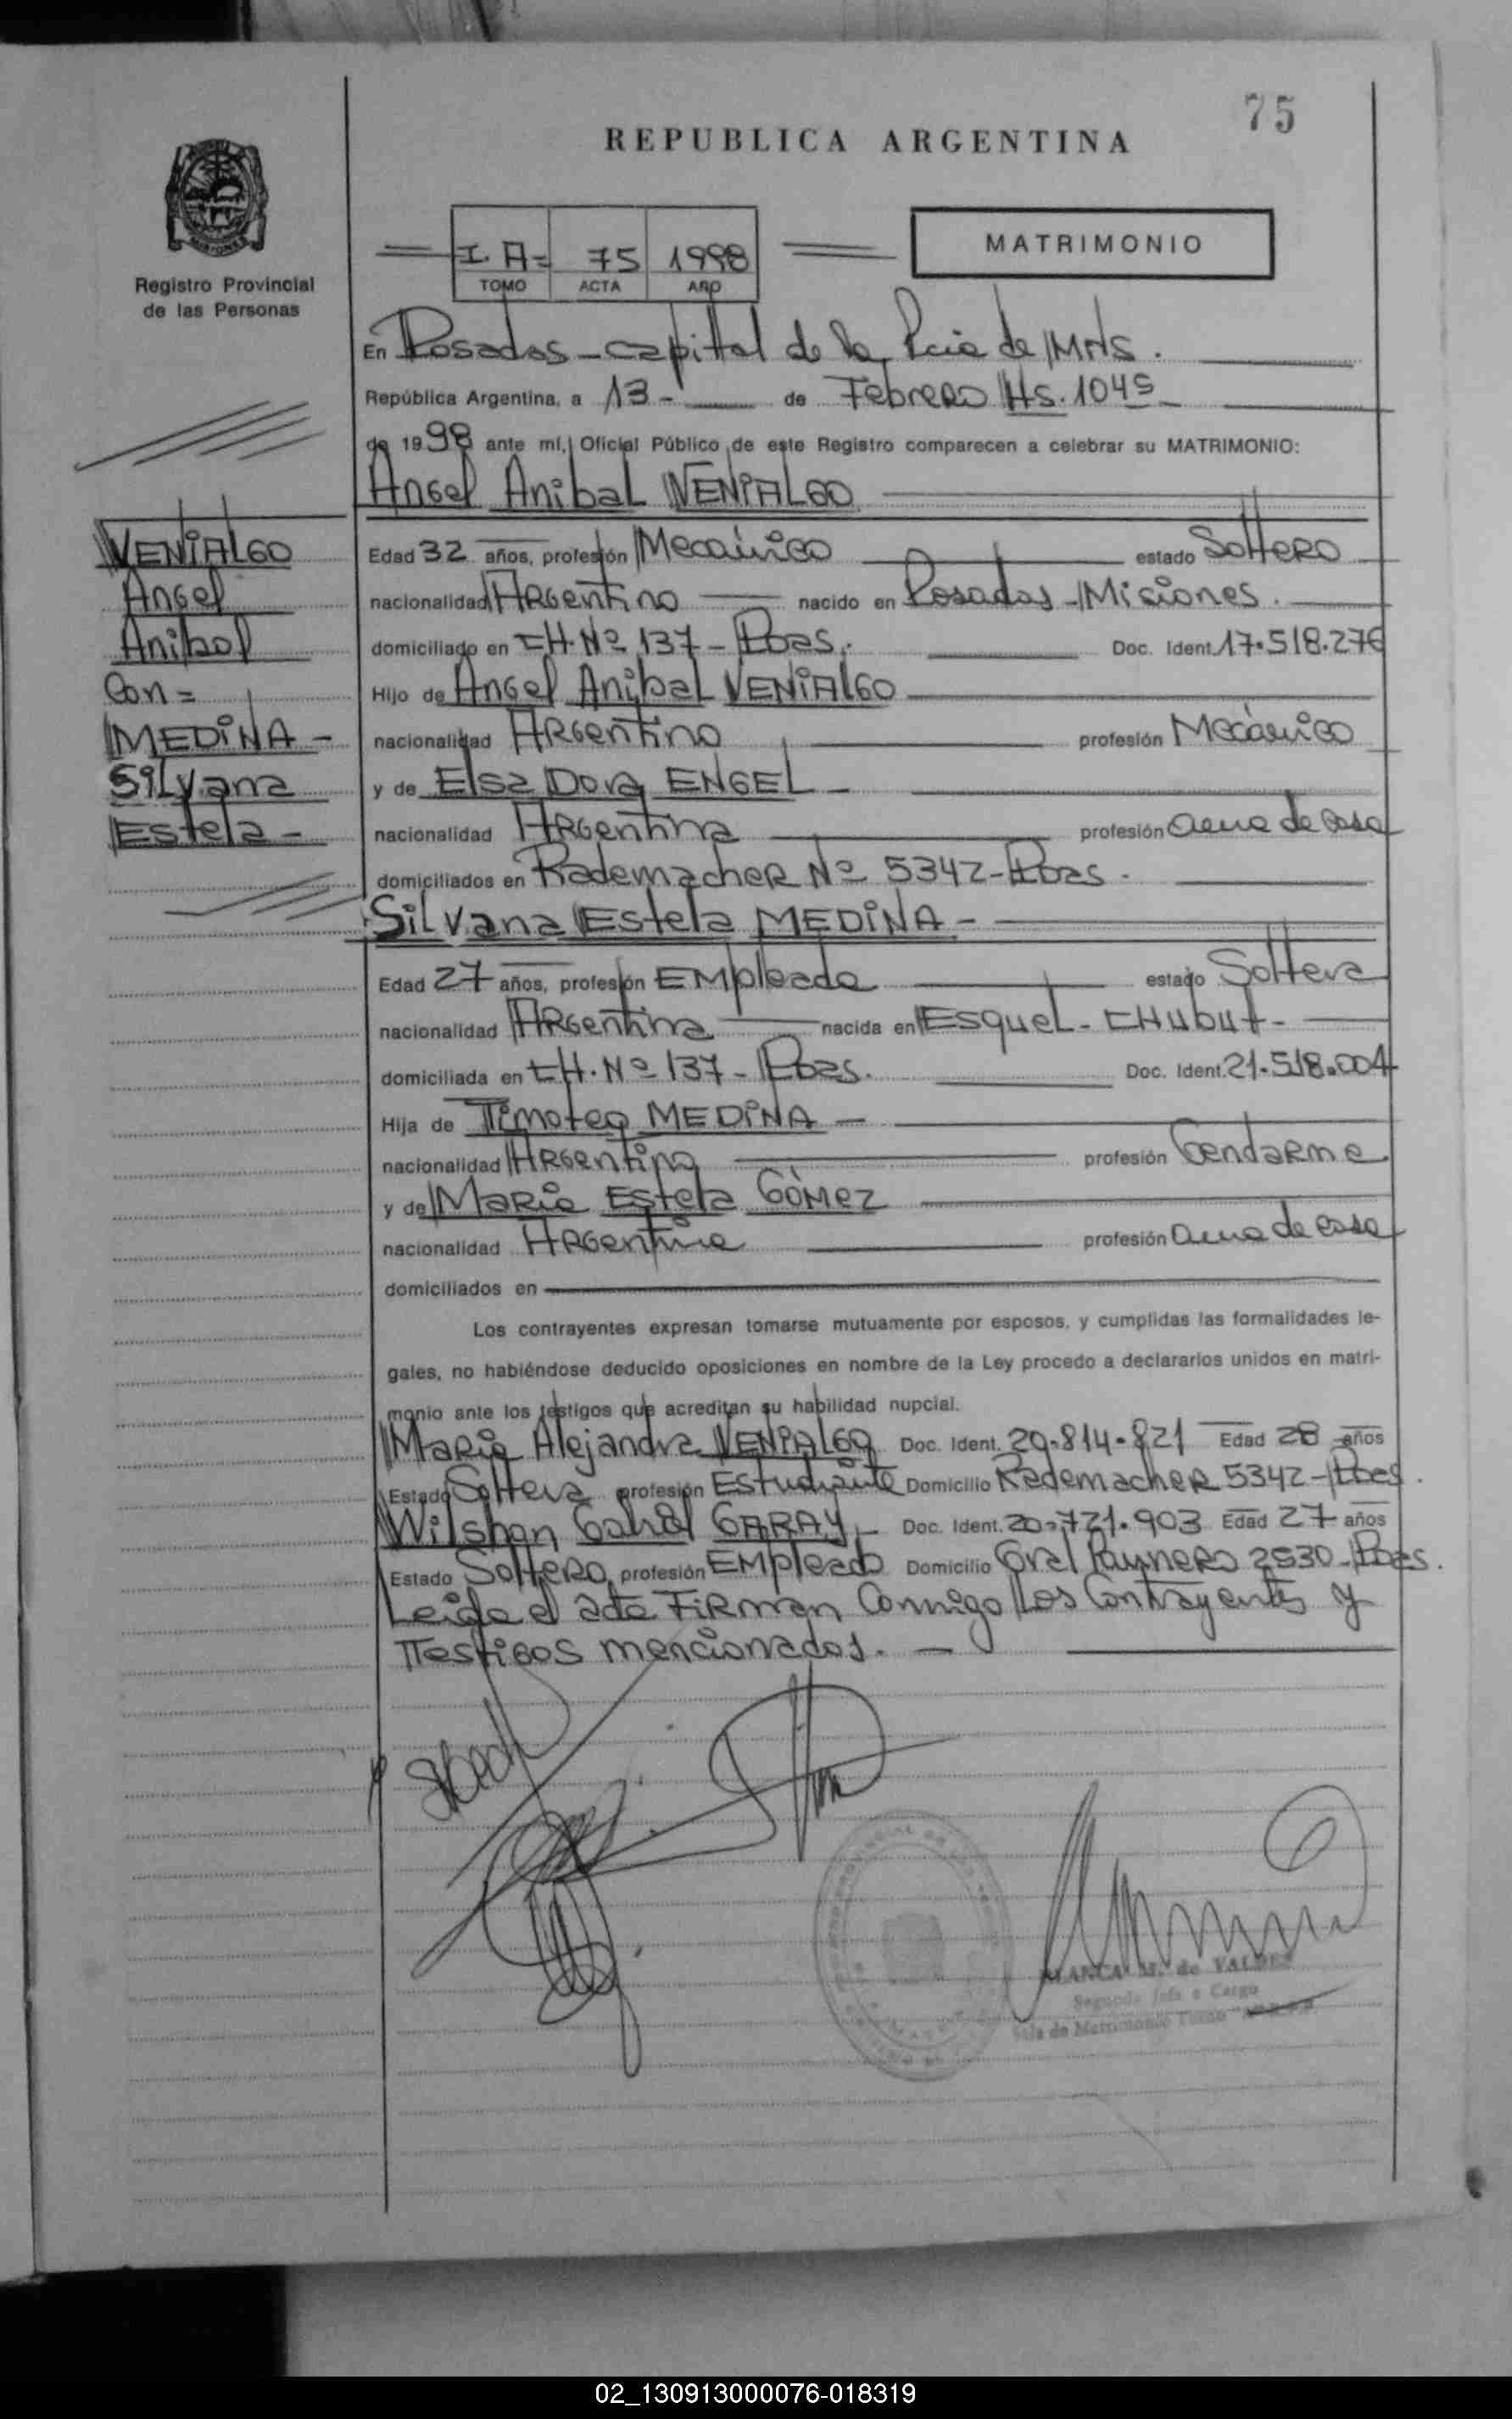 75
REPUBLICA ARGENTINA
MATRIMONIO
I. A= 75 1998
TOMO ACTA AÑO
Registro Provincial
de las Personas
En Posadas - capital de la Pcia de MNS.
República Argentina, a 13 - de Febrero Hs. 1045
de 1998 ante mí, Oficial Público de este Registro comparecen a celebrar su MATRIMONIO:
Angel Anibal VENIALGO
VENIALGO
Angel
Anibal
Con =
MEDINA -
Silvana
Estela -
Edad 32 años, profesión Mecánico estado Soltero
nacionalidad Argentino nacido en Posadas - Misiones.
domiciliado en CH. Nº 137 - Pdas. Doc. Ident. 17.518.276
Hijo de Angel Anibal VENIALGO
nacionalidad Argentino profesión Mecánico
y de Elsa Dora ENGEL -
nacionalidad Argentina profesión ama de casa
domiciliados en Rademacher Nº 5342 - Pdas.
Silvana Estela MEDINA -
Edad 27 años, profesión Empleada estado Soltera
nacionalidad Argentina nacida en Esquel - CHubut -
domiciliada en CH. Nº 137 - Pdas. Doc. Ident. 21.518.004
Hija de Timoteo MEDINA -
nacionalidad Argentino profesión Gendarme
y de Maria Estela GÓMEZ
nacionalidad Argentina profesión ama de casa
domiciliados en
Los contrayentes expresan tomarse mutuamente por esposos, y cumplidas las formalidades le-
gales, no habiéndose deducido oposiciones en nombre de la Ley procedo a declararlos unidos en matri-
monio ante los testigos que acreditan su habilidad nupcial.
Maria Alejandra VENIALGO Doc. Ident. 20.814.821 Edad 28 años
Estado Soltera profesión Estudiante Domicilio Rademacher 5342 - Pdas.
Wilshan GARAY - Doc. Ident. 20.721.903 Edad 27 años
Estado Soltero profesión Empleado Domicilio Gral 2530 - Pdas.
Leida el acta Firman Conmigo Los Contrayentes y
Testigos mencionados. -
BLANCA M. de VALDES
Segundo Jefe a Cargo
Sala de Matrimonio Turno
02_130913000076-018319